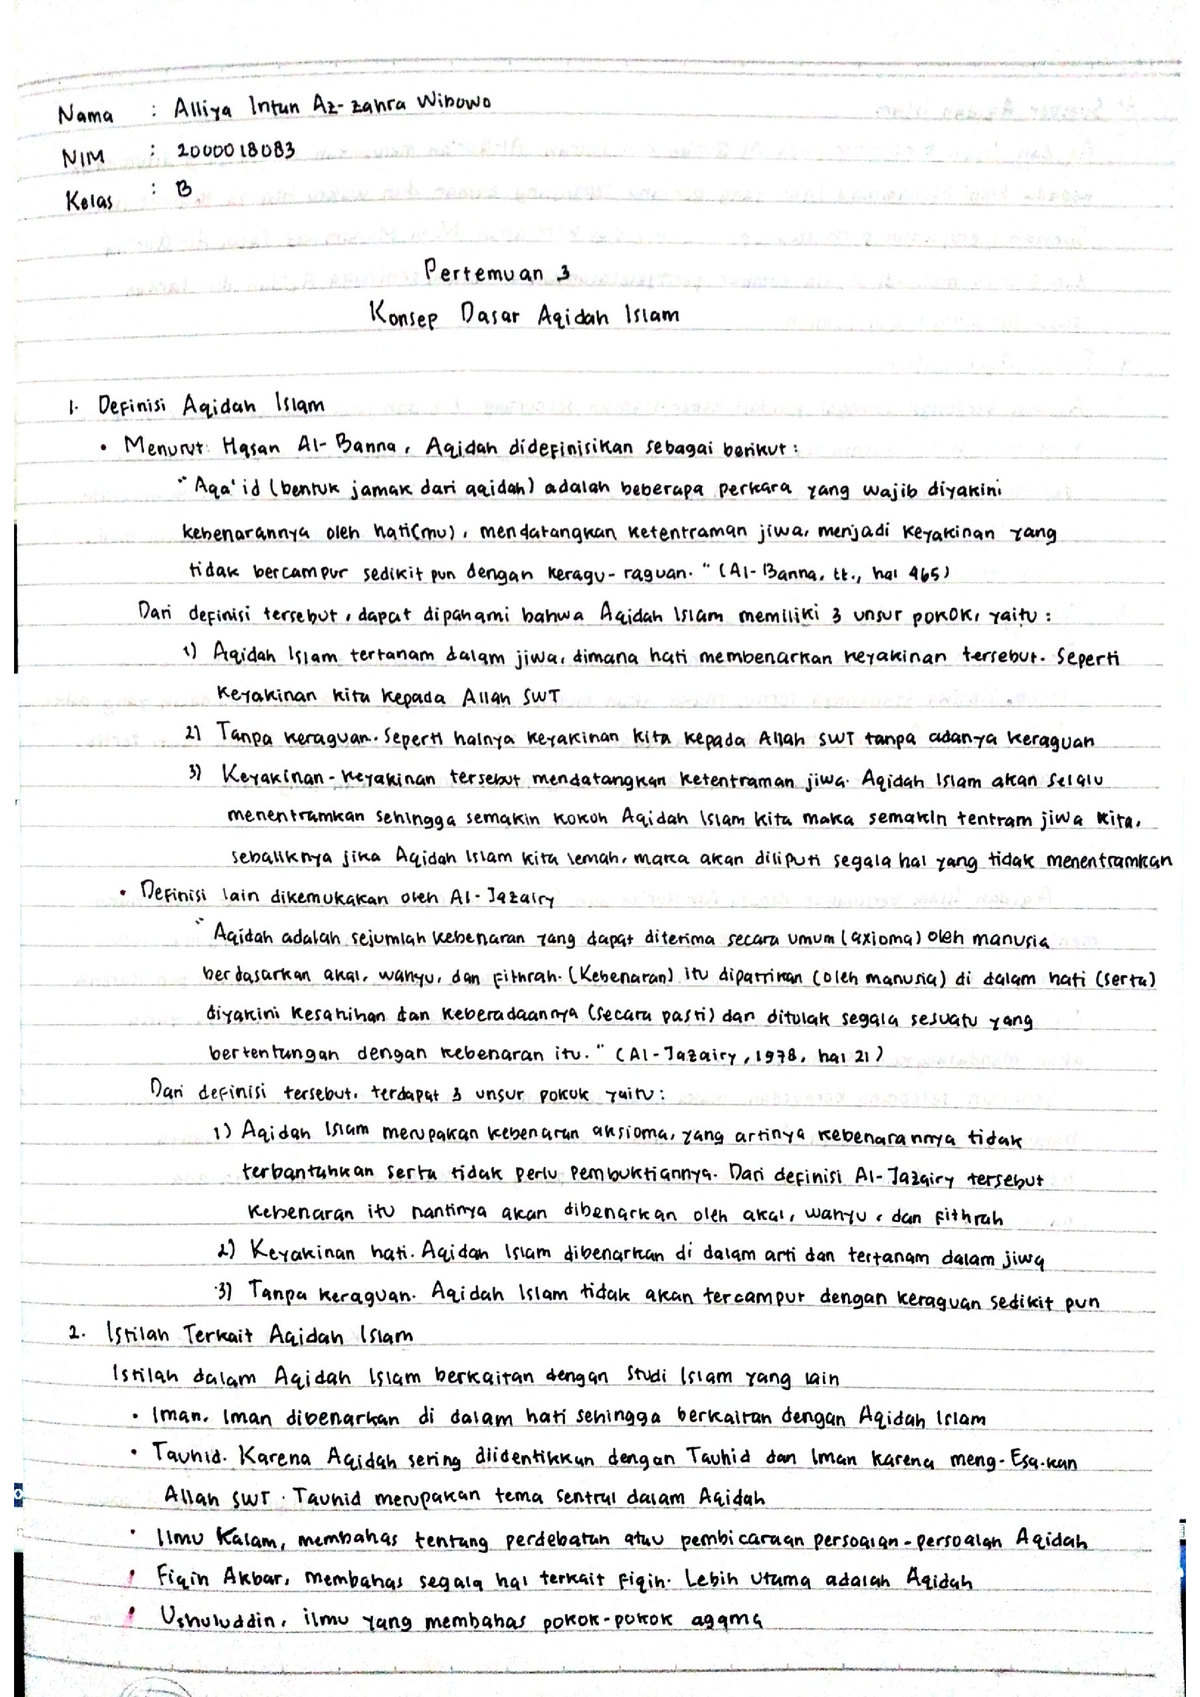 Nama : Alliya Intan Az-zahra Wibowo
NIM : 2000018083
Kelas : B
Pertemuan 3
Konsep Dasar Aqidah Islam
1. Definisi Aqidah Islam
• Menurut Hasan Al-Banna, Aqidah didefinisikan sebagai berikut :
"Aqa'id (bentuk jamak dari aqidah) adalah beberapa perkara yang wajib diyakini
kebenarannya oleh hati(mu), mendatangkan ketentraman jiwa, menjadi keyakinan yang
tidak bercampur sedikit pun dengan keragu-raguan." (Al-Banna, tt., hal 465)
Dari definisi tersebut, dapat dipahami bahwa Aqidah Islam memiliki 3 unsur pokok, yaitu :
1) Aqidah Islam tertanam dalam jiwa, dimana hati membenarkan keyakinan tersebut. Seperti
keyakinan kita kepada Allah SWT
2) Tanpa keraguan. Seperti halnya keyakinan kita kepada Allah SWT tanpa adanya keraguan
3) Keyakinan-keyakinan tersebut mendatangkan ketentraman jiwa. Aqidah Islam akan selalu
menentramkan sehingga semakin kokoh Aqidah Islam kita maka semakin tentram jiwa kita,
sebaliknya jika Aqidah Islam kita lemah, maka akan diliputi segala hal yang tidak menentramkan
• Definisi lain dikemukakan oleh Al-Jazairy
"Aqidah adalah sejumlah kebenaran yang dapat diterima secara umum (axioma) oleh manusia
berdasarkan akal, wahyu, dan fithrah. (Kebenaran) itu dipatrikan (oleh manusia) di dalam hati (serta)
diyakini kesahihan dan keberadaannya (secara pasti) dan ditolak segala sesuatu yang
bertentangan dengan kebenaran itu." (Al-Jazairy, 1978, hal 21)
Dari definisi tersebut, terdapat 3 unsur pokok yaitu :
1) Aqidah Islam merupakan kebenaran aksioma, yang artinya kebenarannya tidak
terbantahkan serta tidak perlu pembuktiannya. Dari definisi Al-Jazairy tersebut
kebenaran itu nantinya akan dibenarkan oleh akal, wahyu, dan fithrah
2) Keyakinan hati. Aqidah Islam dibenarkan di dalam arti dan tertanam dalam jiwa
3) Tanpa keraguan. Aqidah Islam tidak akan tercampur dengan keraguan sedikit pun
2. Istilah Terkait Aqidah Islam
Istilah dalam Aqidah Islam berkaitan dengan studi Islam yang lain
• Iman. Iman dibenarkan di dalam hati sehingga berkaitan dengan Aqidah Islam
• Tauhid. Karena Aqidah sering diidentikkan dengan Tauhid dan Iman karena meng-Esa-kan
Allah SWT. Tauhid merupakan tema sentral dalam Aqidah
• Ilmu Kalam, membahas tentang perdebatan atau pembicaraan persoalan-persoalan Aqidah
• Fiqih Akbar, membahas segala hal terkait fiqih. Lebih utama adalah Aqidah
• Ushuluddin, ilmu yang membahas pokok-pokok agama